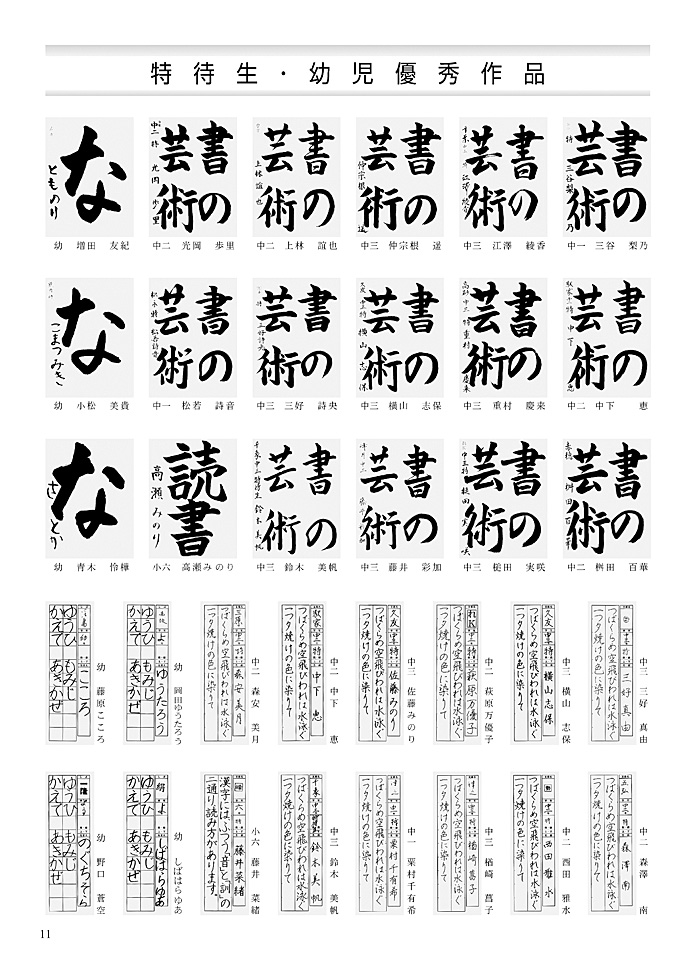 特待生・幼児優秀作品
な
とものり
幼 増田 友紀
書の
芸術
中二 光岡 歩里
書の
芸術
中二 上林 誼也
書の
芸術
中三 仲宗根 遥
書の
芸術
中三 江澤 綾香
書の
芸術
中一 三谷 梨乃
な
こまつみき
幼 小松 美貴
書の
芸術
中一 松若 詩音
書の
芸術
中三 三好 詩央
書の
芸術
中三 横山 志保
書の
芸術
中三 重村 慶来
書の
芸術
中二 中下 恵
な
さとか
幼 青木 怜樺
読書
高瀬みのり
小六 高瀬みのり
書の
芸術
中三 鈴木 美帆
書の
芸術
中三 藤井 彩加
書の
芸術
中三 槌田 実咲
書の
芸術
中二 桝田 百華
こころ
ゆうひ もみじ
かえで あきかぜ
幼 藤原こころ
ゆうたろう
ゆうひ もみじ
かえで あきかぜ
幼 岡田ゆうたろう
森安美月
つばくらめ空飛びわれは水泳ぐ
一つ夕焼けの色に染りて
中二 森安 美月
中下 恵
つばくらめ空飛びわれは水泳ぐ
一つ夕焼けの色に染りて
中二 中下 恵
佐藤みのり
つばくらめ空飛びわれは水泳ぐ
一つ夕焼けの色に染りて
中三 佐藤みのり
萩原万優子
つばくらめ空飛びわれは水泳ぐ
一つ夕焼けの色に染りて
中二 萩原万優子
横山志保
つばくらめ空飛びわれは水泳ぐ
一つ夕焼けの色に染りて
中三 横山 志保
三好真由
つばくらめ空飛びわれは水泳ぐ
一つ夕焼けの色に染りて
中三 三好 真由
のぐちそら
ゆうひ もみじ
かえで あきかぜ
幼 野口 蒼空
しばはらゆあ
ゆうひ もみじ
かえで あきかぜ
幼 しばはらゆあ
藤井菜緒
漢字にはふつう「音」と「訓」の
二通り読み方があります。
小六 藤井 菜緒
鈴木美帆
つばくらめ空飛びわれは水泳ぐ
一つ夕焼けの色に染りて
中三 鈴木 美帆
栗村千有希
つばくらめ空飛びわれは水泳ぐ
一つ夕焼けの色に染りて
中一 栗村千有希
楢崎菖子
つばくらめ空飛びわれは水泳ぐ
一つ夕焼けの色に染りて
中三 楢崎 菖子
西田雅水
つばくらめ空飛びわれは水泳ぐ
一つ夕焼けの色に染りて
中二 西田 雅水
森澤南
つばくらめ空飛びわれは水泳ぐ
一つ夕焼けの色に染りて
中二 森澤 南
11